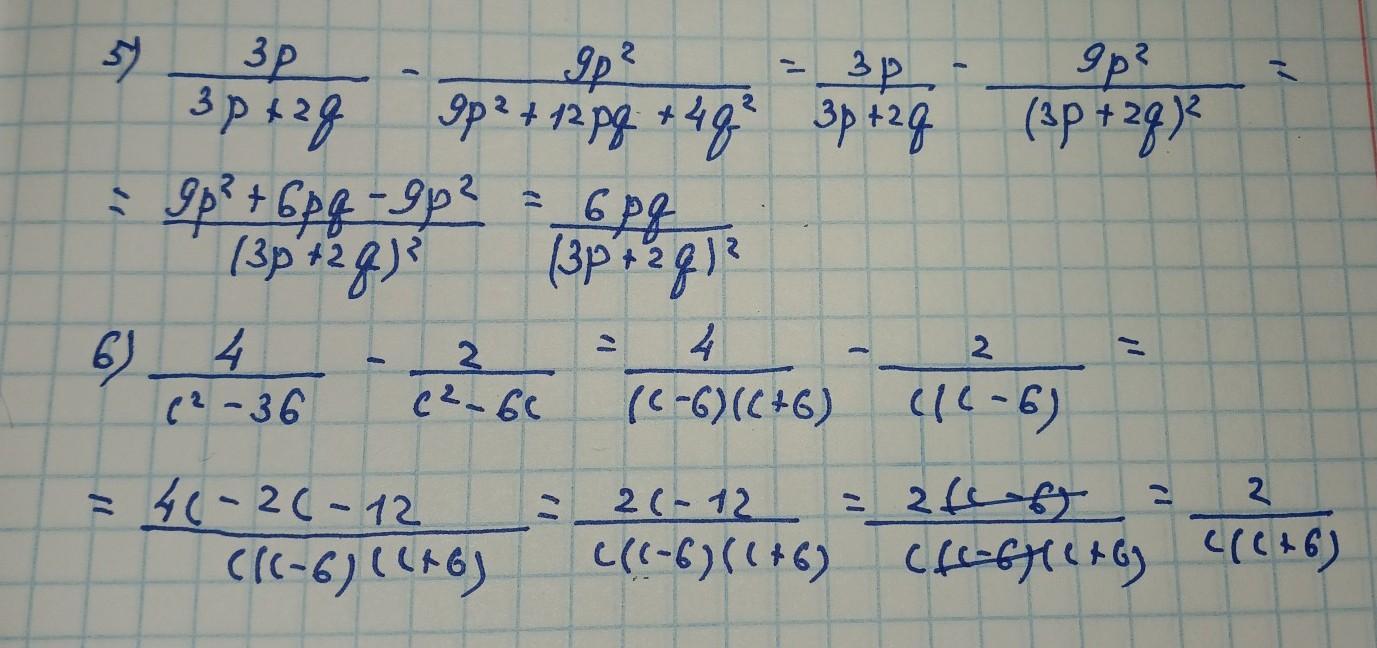 5) 3p/(3p+2q) - 9p²/(9p²+12pq+4q²) = 3p/(3p+2q) - 9p²/(3p+2q)² =
= (9p²+6pq-9p²)/(3p+2q)² = 6pq/(3p+2q)²
6) 4/(c²-36) - 2/(c²-6c) = 4/((c-6)(c+6)) - 2/(c(c-6)) =
= (4c-2c-12)/(c(c-6)(c+6)) = (2c-12)/(c(c-6)(c+6)) = 2(c-6)/(c(c-6)(c+6)) = 2/(c(c+6))